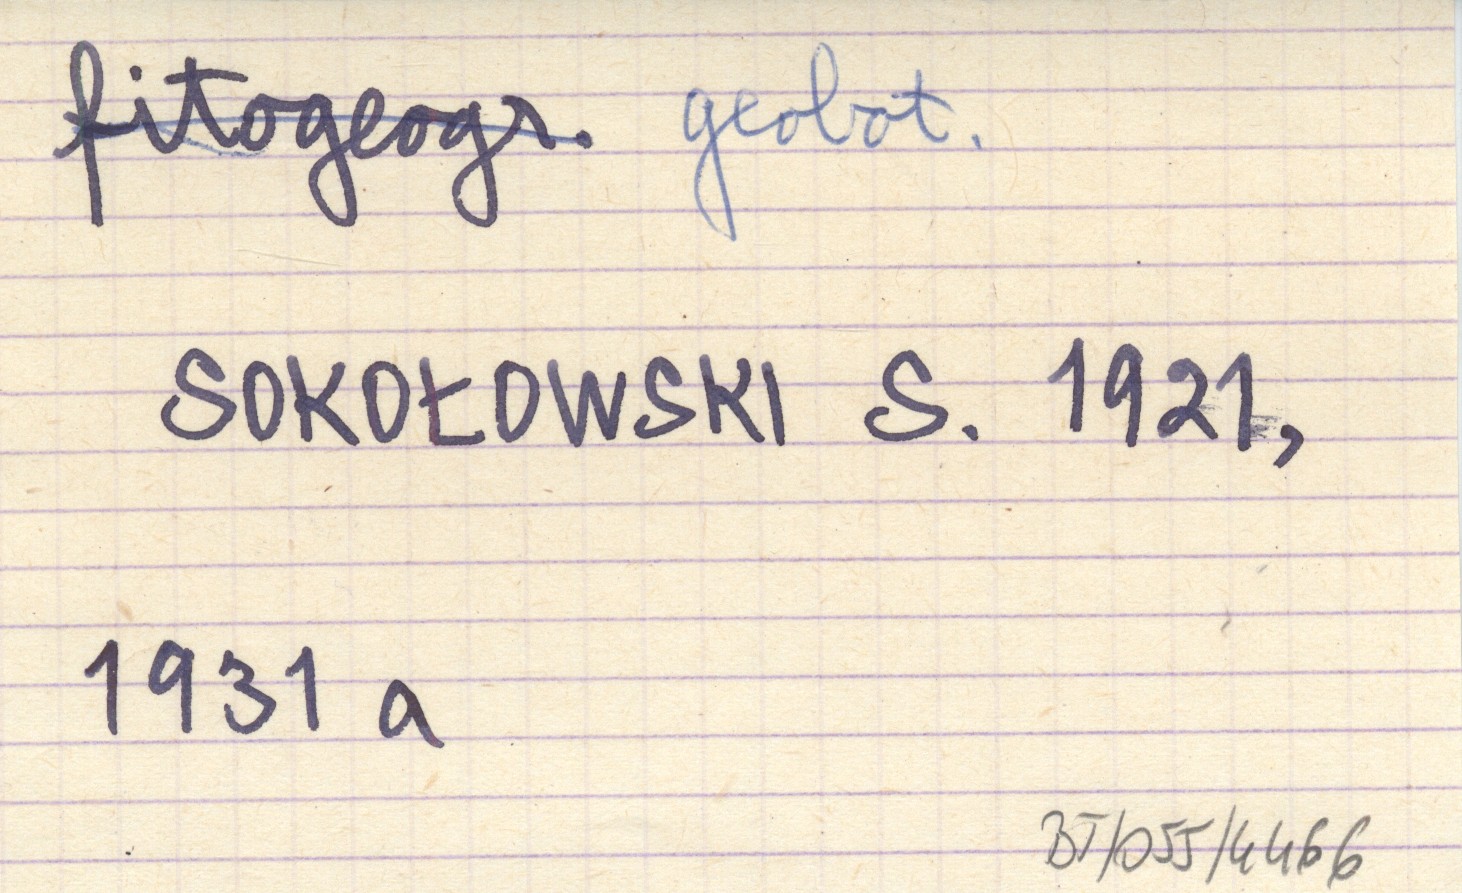 fitogeogr. geobot.
SOKOŁOWSKI S. 1921,
1931 a
BT/055/4466